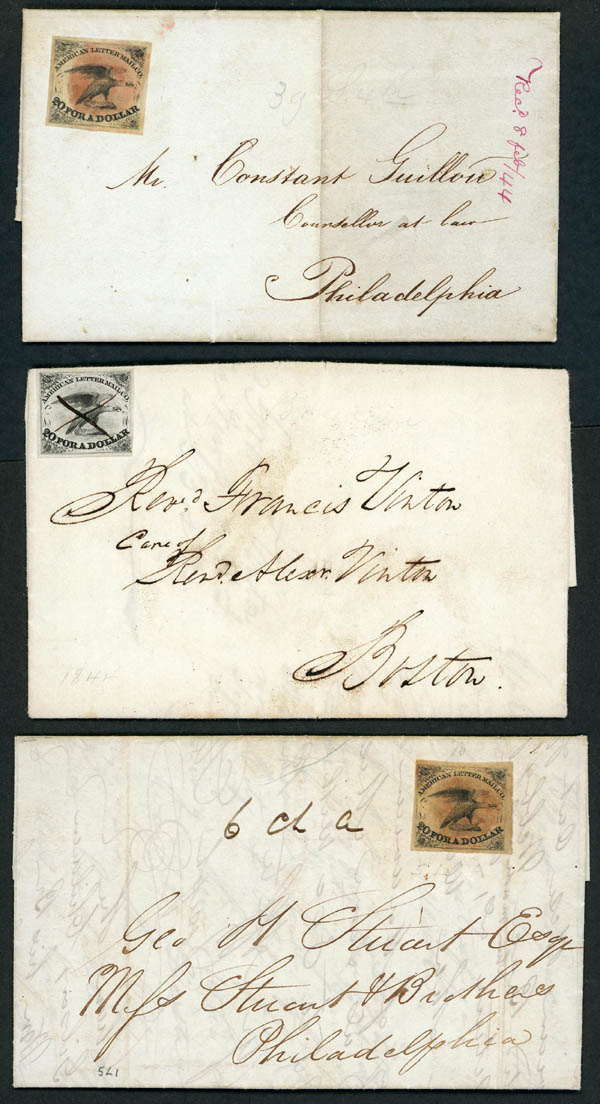 AMERICAN LETTER MAIL CO.
20 FOR A DOLLAR
Rec.d 8 feb/44
39
Mr. Constant Guillou
Counsellor at law
Philadelphia
AMERICAN LETTER MAIL CO.
20 FOR A DOLLAR
Revd. Francis Vinton
Care of
Revd. Alexr. Vinton
Boston.
1844
AMERICAN LETTER MAIL CO.
20 FOR A DOLLAR
6 ch a
Geo H Stuart Esqr
Messs Stuart & Brothers
Philadelphia
5L1